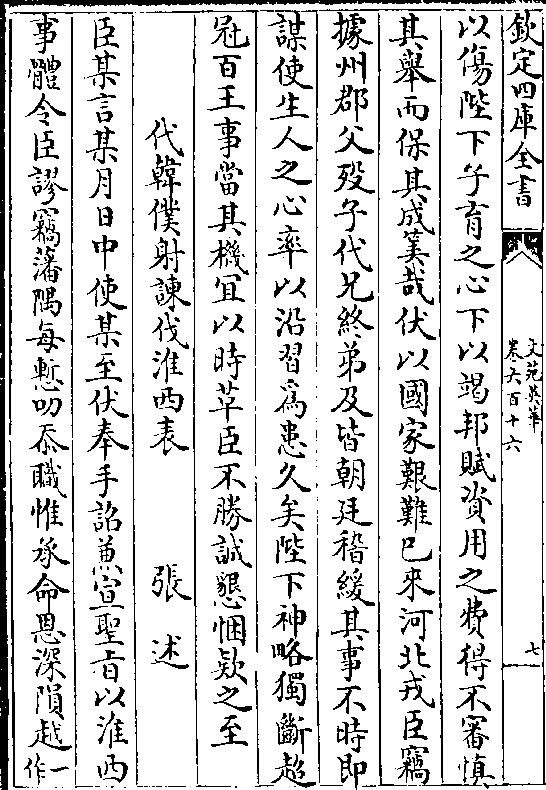 欽定四庫全書
文苑英華
卷六百十六
七
以傷陛下子育之心下以竭邦賦資用之費得不審慎
其舉而保其成筭哉伏以國家艱難已來河北戎臣竊
據州郡父歿子代兄終弟及皆朝廷稽緩其事不時即
謀使生人之心率以沿習為患久矣陛下神略獨斷超
冠百王事當其機宜以時革臣不勝誠懇悃欵之至
代韓僕射諫伐淮西表 張述
臣某言某月日中使某至伏奉手詔兼宣聖旨以淮西
事體令臣謬竊藩隅每慙叨忝職惟承命恩深隕越一作